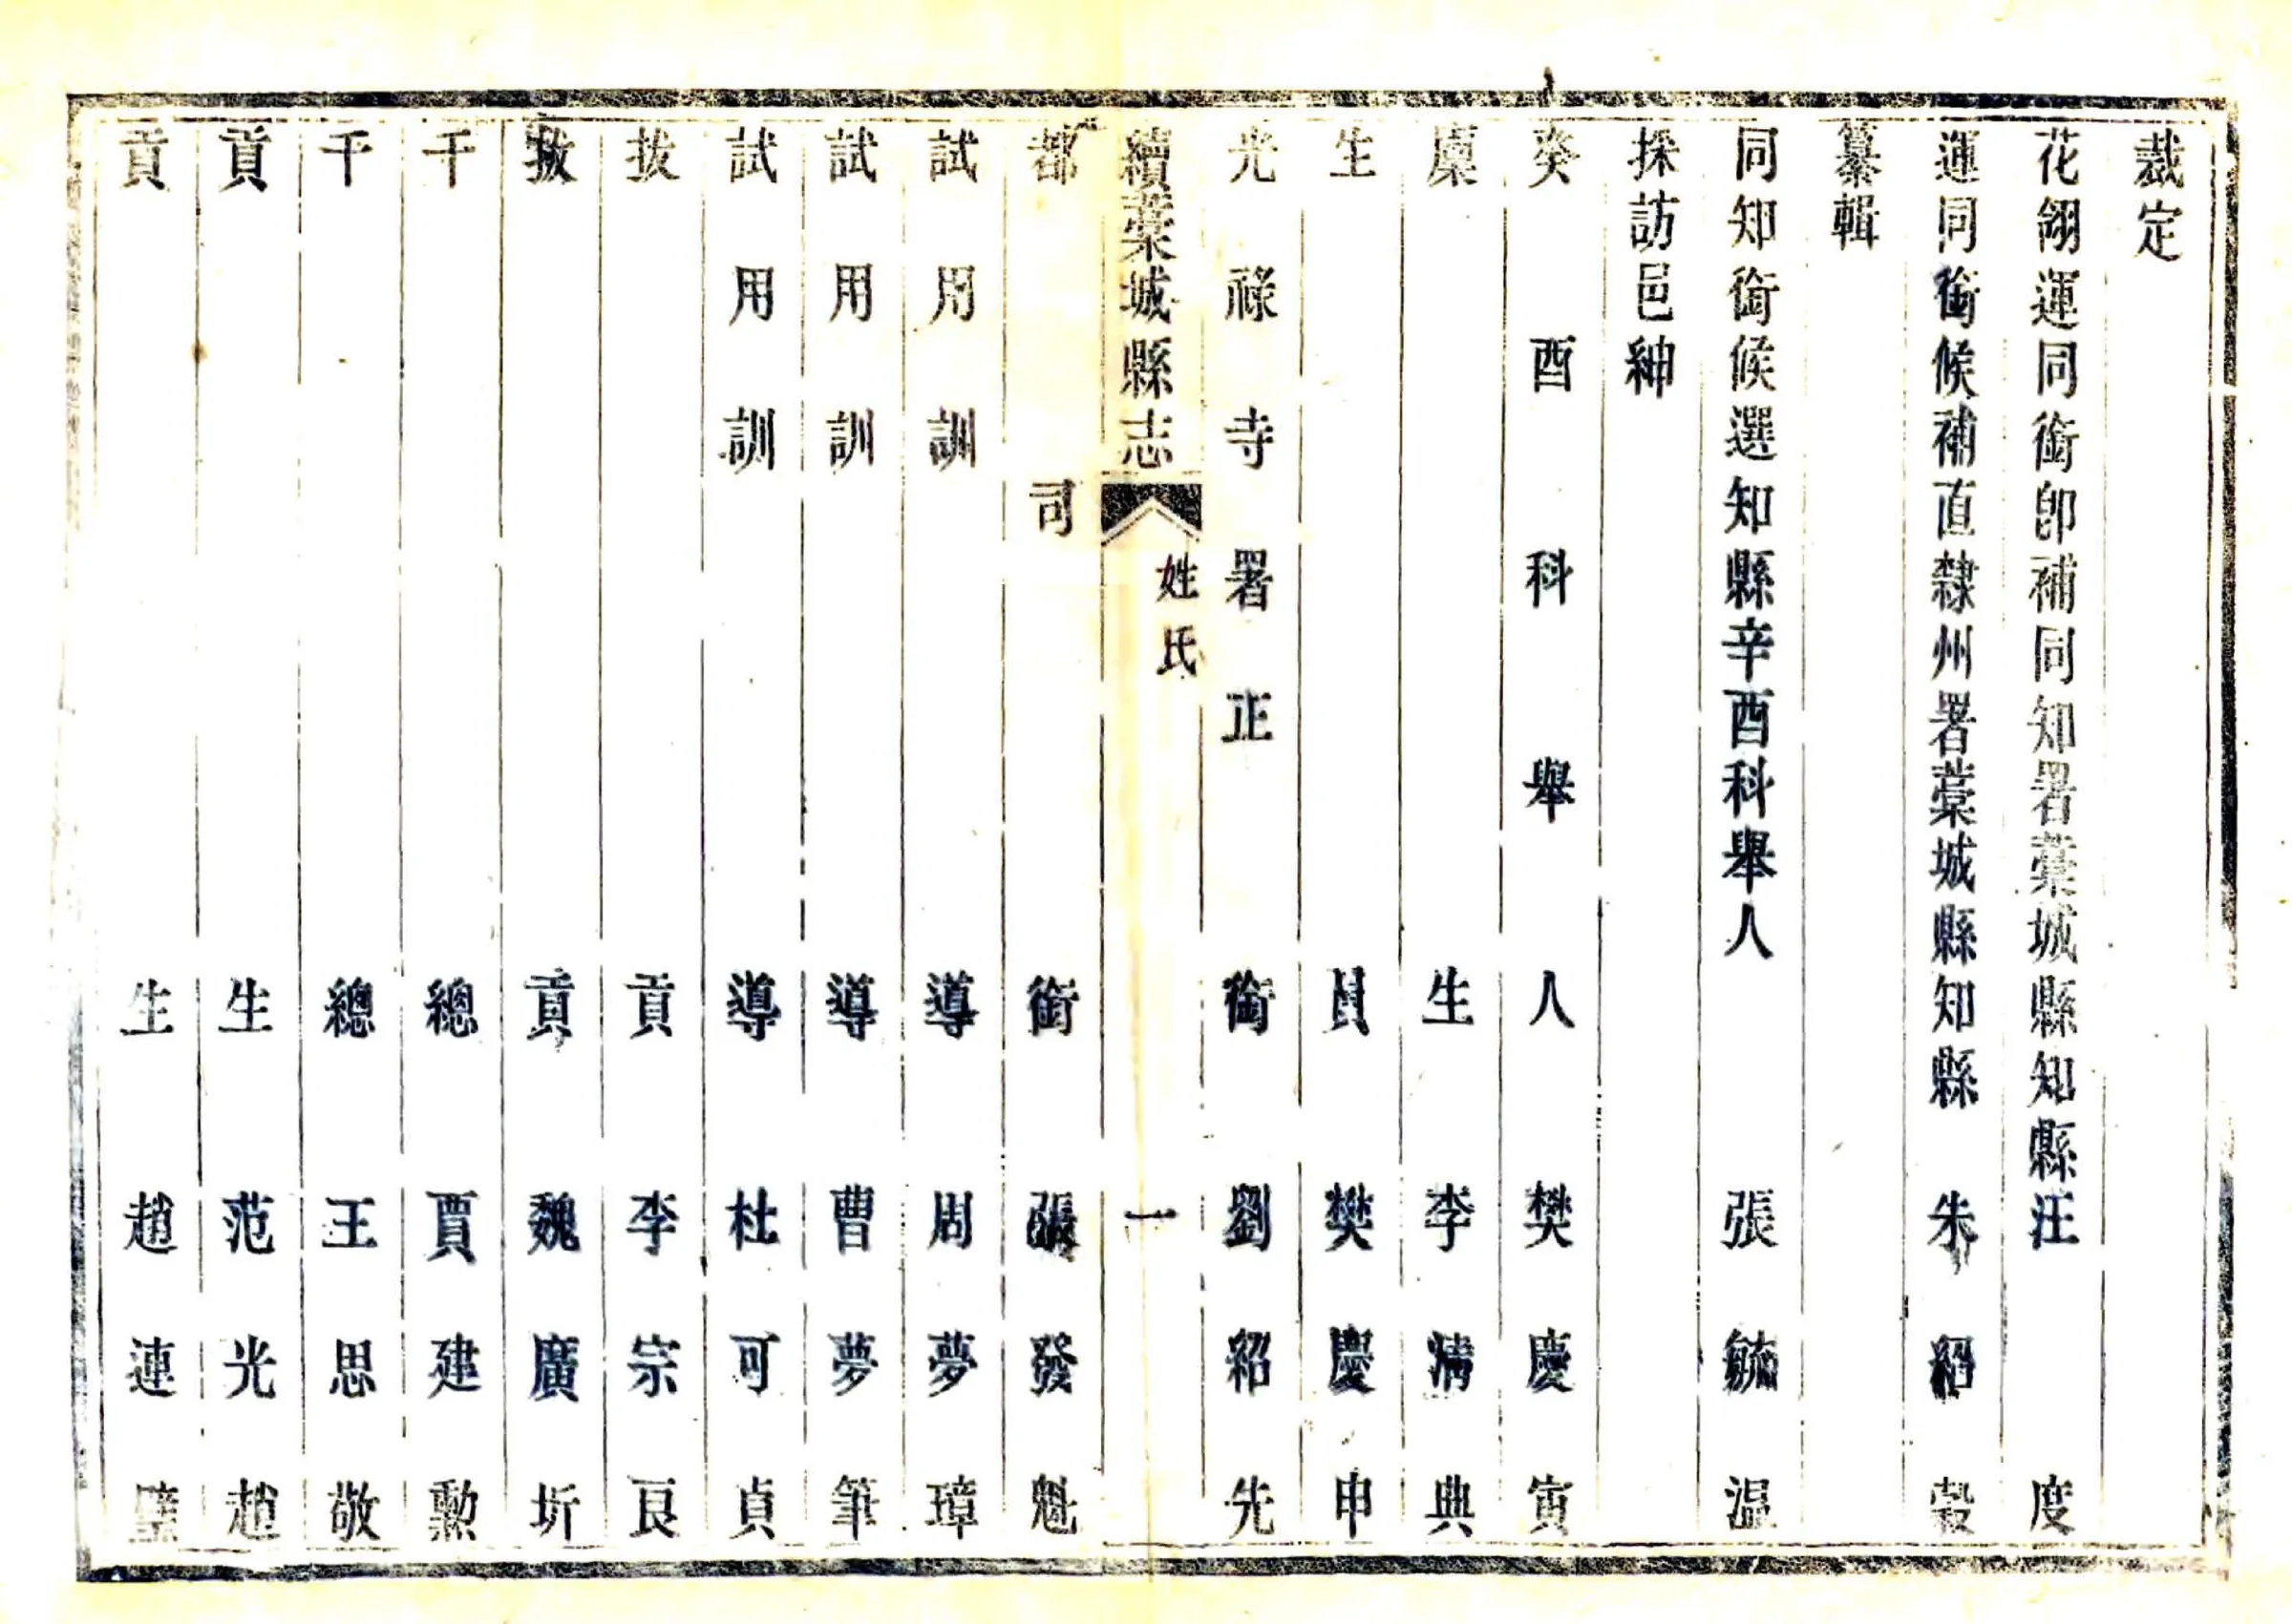 裁定
花翎運同銜卽補同知署藁城縣知縣汪度
運同銜候補直隸州署藁城縣知縣朱紹穀
纂輯
同知銜候選知縣辛酉科舉人張毓温
採訪邑紳
癸酉科舉人樊慶寅
廩生李清典
生員樊慶申
光祿寺署正銜劉紹先
續藁城縣志 姓氏 一
都司銜張發魁
試用訓導周夢璋
試用訓導曹夢筆
試用訓導杜可貞
拔貢李宗良
拔貢魏廣圻
千總賈建勲
千總王思敬
貢生范光趙
貢生趙連璧